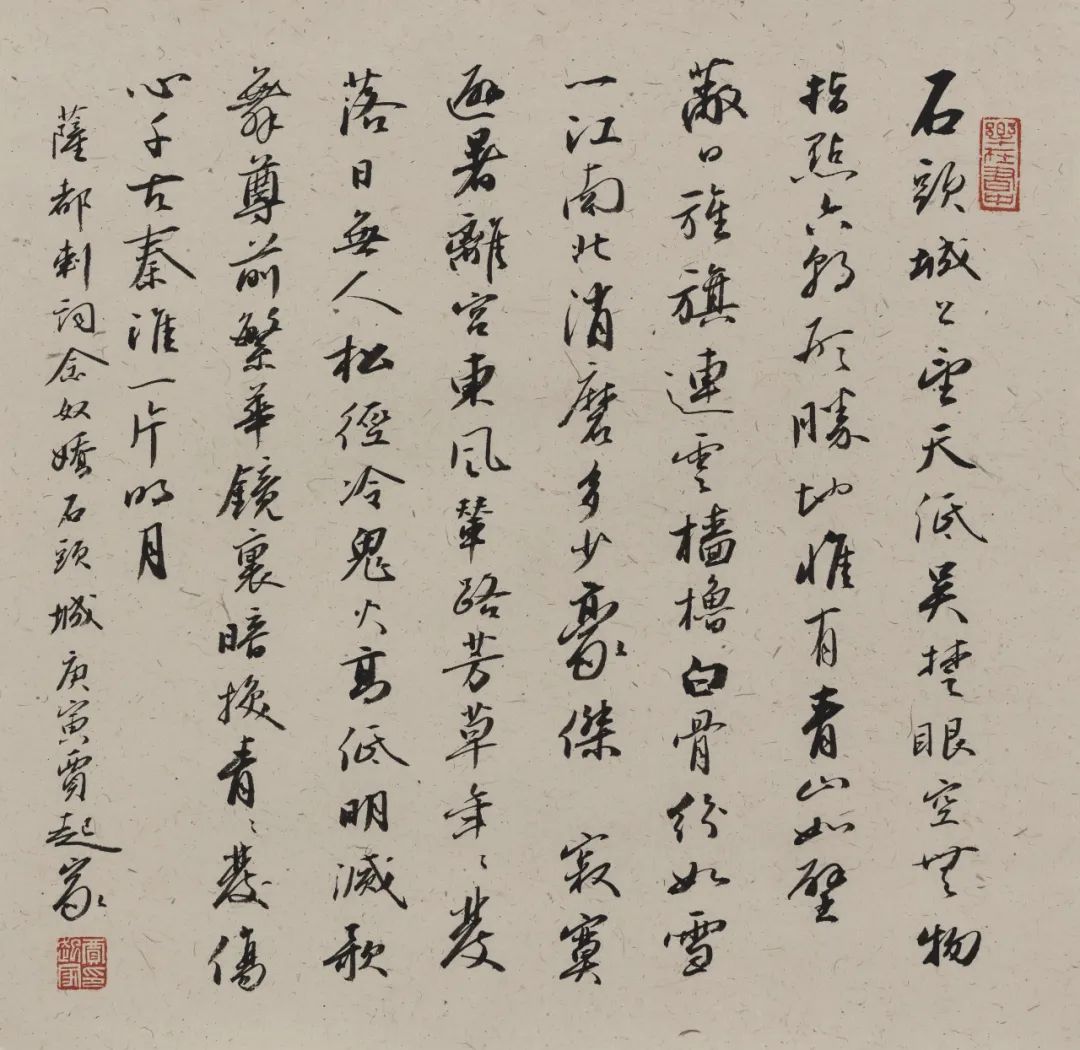 樂在書中
石頭城上望天低吳楚眼空無物
指點六朝形勝地惟有青山如壁
蔽日旌旗連雲檣櫓白骨紛如雪
一江南北消磨多少豪傑 寂寞
避暑離宮東風輦路芳草年〻發
落日無人松徑冷鬼火高低明滅歌
舞尊前繁華鏡裏暗換青〻髮傷
心千古秦淮一片明月
薩都剌詞念奴嬌石頭城庚寅賈起家